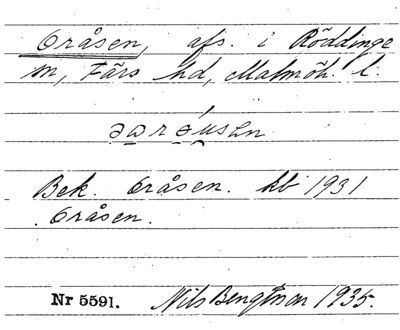 Oråsen, afs. i Röddinge
sn, Färs hd, Malmöh. l.
Bek. Oråsen. kb 1931
Oråsen.
Nr 5591. Nils Bengtson 1935.